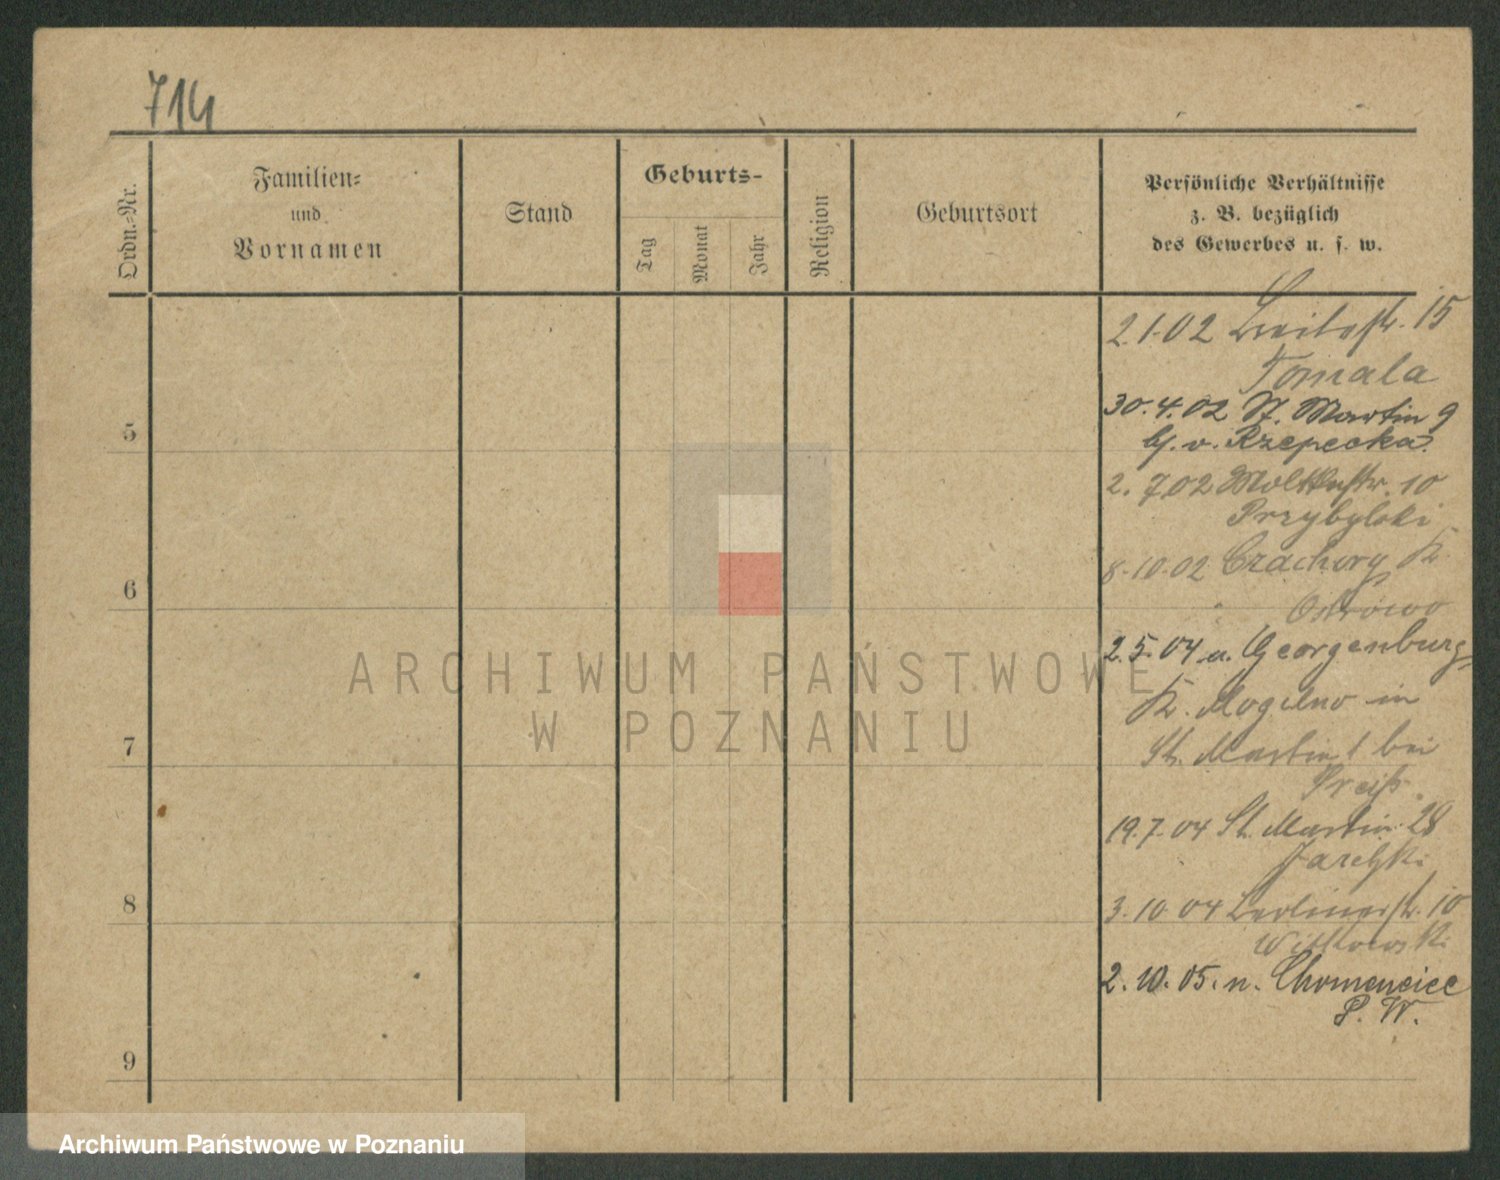 714
Ordn.=Nr.
Familien=
und
Vornamen
Stand
Geburts-
Tag
Monat
Jahr
Religion
Geburtsort
Persönliche Verhältnisse
z. B. bezüglich
des Gewerbes u. s. w.
2.1.02 Breitestr. 15
Tomala
30.4.02 St. Martin 9
b. v. Rzepecka.
5
2. 7 02 Moltkestr. 10
Przybylski
8.10.02 K.
Ostrowo
6
2.5.04 n. Georgenburg
K. Mogilno in
St. Martin 1 bei
Preiß.
7
19.7.04 St. Martin 28
Jaretzki
3.10 04 Berlinerstr. 10
Witkowski
8
2.10.05. n. Chomencice
P. W.
9
ARCHIWUM PAŃSTWOWE
W POZNANIU
Archiwum Państwowe w Poznaniu